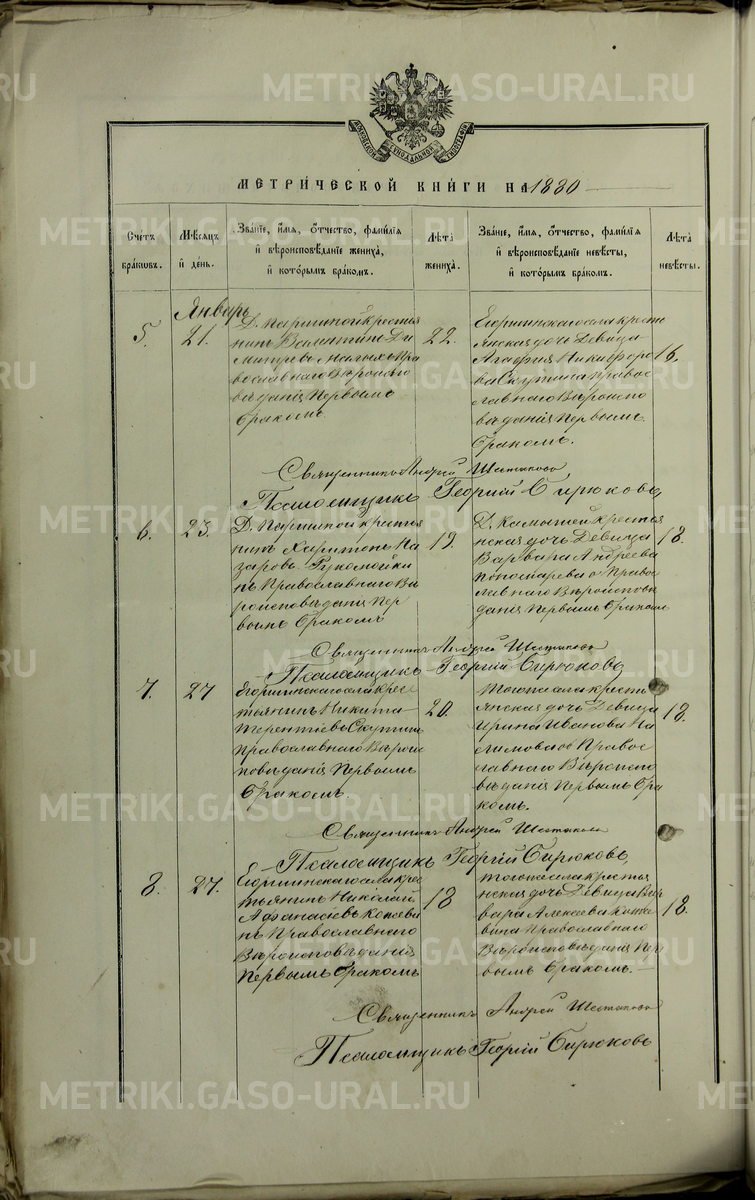 МОСКОВСКОЙ СѴНОДАЛЬНОЙ ТИПОГРАФІИ
МЕТРИ́ЧЕСКОЙ КНИ́ГИ НА 1880
Сче́тъ бра́ковъ.
Мѣ́сяцъ и҆ де́нь.
Зва́ніе, и҆́мя, ѻ҆́тчество, фами́лія и҆ вѣроисповѣ́даніе жениха̀, и҆ кото́рымъ бра́комъ.
Лѣ́та жениха̀.
Зва́ніе, и҆́мя, ѻ҆́тчество, фами́лія и҆ вѣроисповѣ́даніе невѣ́сты, и҆ кото́рымъ бра́комъ.
Лѣ́та невѣ́сты.
Январь
5.
21.
Д. Паршиной крестья
нинъ Валентинъ Ди
митріевъ Малыхъ Пра
вославнаго Вѣроиспо
вѣданія Первымъ
бракомъ
22.
Егоршинскаго села кресть
янская дочь девица
Агафія Никифоро
ва Скутина право
славнаго Вѣроиспо
вѣданія Первымъ
бракомъ.
16.
Священникъ Андрей Шестаковъ
Псаломщикъ Георгій Бирюковъ
6.
23.
Д. Паршиной крестья
нинъ Харитонъ На
заровъ Рукомойки
нъ Православнаго Вѣ
роисповѣданія Пер
вымъ бракомъ
19.
крестья
нская дочь девица
Варвара Андреева
Пономарева Право
славнаго Вѣроисповѣ
данія Первымъ бракомъ
18.
Священникъ Андрей Шестаковъ
Псаломщикъ Георгій Бирюковъ
7.
27
Егоршинскаго села крес
тьянинъ Никита
Терентіевъ Скутинъ
Православнаго Вѣрои
сповѣданія Первымъ
бракомъ
20.
Тогоже села кресть
янская дочь девица
Ирина Иванова
Право
славнаго Вѣроиспо
вѣданія Первымъ бра
комъ.
18.
Священникъ Андрей Шестаковъ
Псаломщикъ Георгій Бирюковъ
8.
27.
Егоршинскаго села крес
тьянинъ Николай
Афанасіевъ
Православнаго
Вѣроисповѣданія
Первымъ бракомъ
18
тогоже села крестья
нская дочь девица Вар
вара Алексеева
Православнаго
Вѣроисповѣданія Пер
вымъ бракомъ.
18.
Священникъ Андрей Шестаковъ
Псаломщикъ Георгій Бирюковъ
METRIKI.GASO-URAL.RU